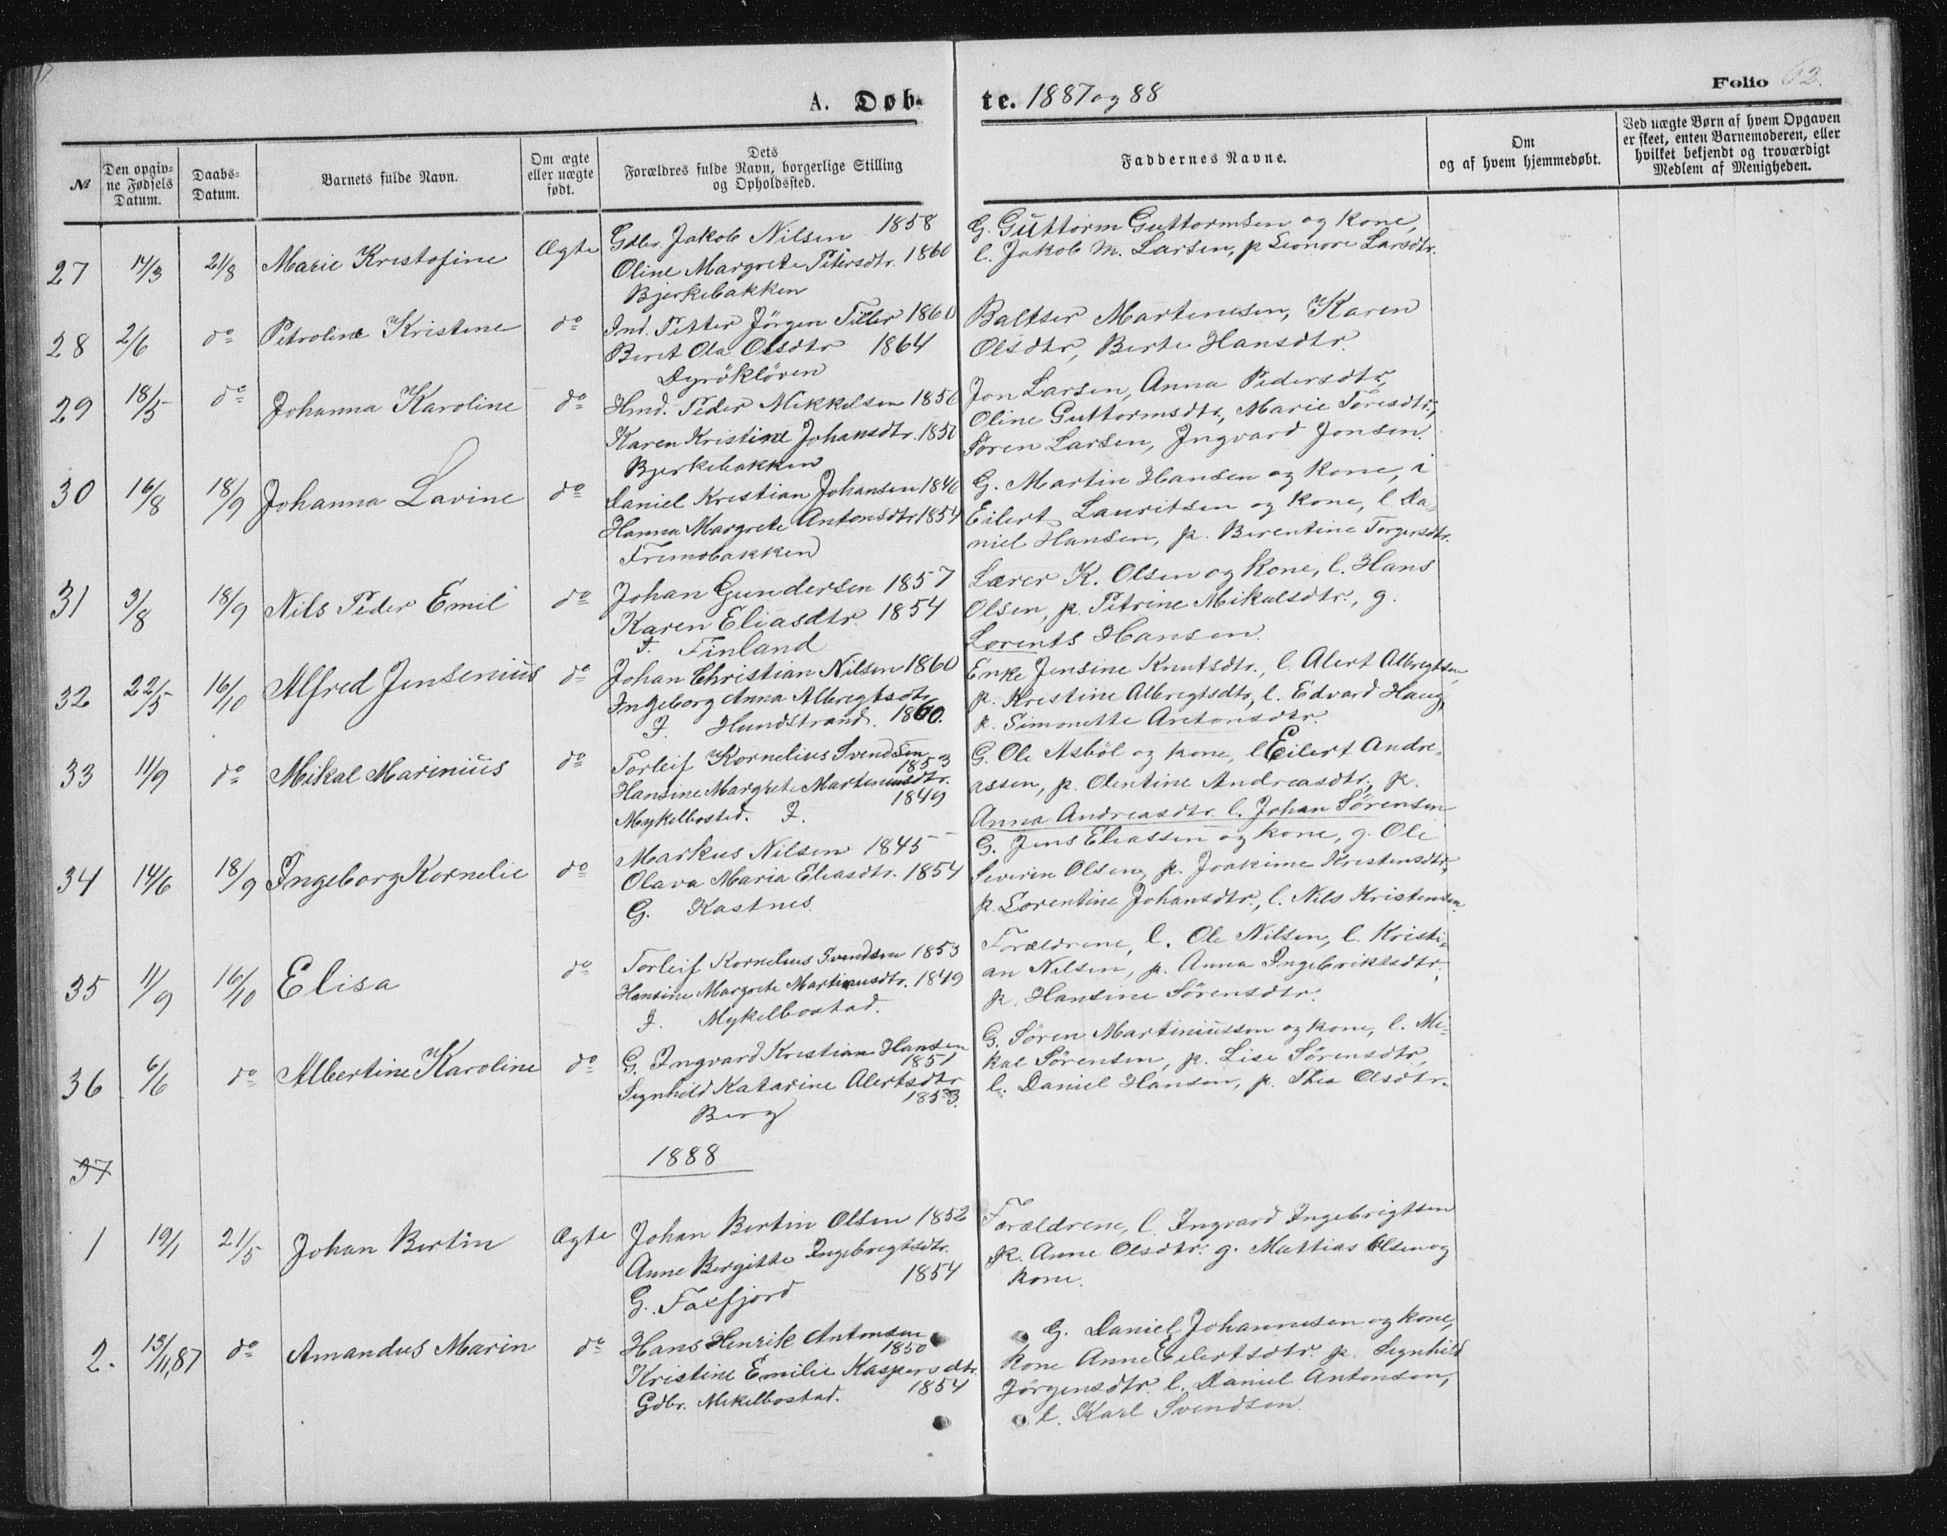 A. Døb-
te. 1887 og 88
Folio 62.
№
Den opgiv-
ne Fødsels
Datum.
Daabs-
Datum.
Barnets fulde Navn.
Om ægte
eller uægte
født.
Dets
Forældres fulde Navn, borgerlige Stilling
og Opholdssted.
Faddernes Navne.
Om
og af hvem hjemmedøbt.
Ved uægte Børn af hvem Opgaven
er skeet, enten Barnemoderen, eller
hvilket bekjendt og troværdigt
Medlem af Menigheden.
27 14/3 21/8 Marie Kristofine Ægte
Gdbr. Jakob Nilsen 1858
Oline Margrete Petersdtr. 1860
Bjerkebakken
G. Guttorm Guttormsen og kone,
l. Jakob M. Larsen, p Leonore Larsdtr.
28 2/6 do Petroline Kristine do
Ind. Petter Jörgen Tiller 1860
Beret Ola Olsdtr 1864
Dyröklöven
Baltser Martenesen, Karen
Olsdtr, Berte Hansdtr.
29 18/5 do Johanna Karoline do
Hmd. Peder Mikkelsen 1856
Karen Kristine Johansdtr. 1850
Bjerkebakken
Jon Larsen, Anna Pedersdtr,
Oline Guttormsdtr, Marie Toresdtr,
Sören Larsen, Ingvard Jonsen.
30 16/8 18/9 Johanna Lavine do
Daniel Kristian Johansen 1846
Hanna Margrete Antonsdtr 1854
Fremobakken
G. Martin Hansen og kone, i
Eilert Lauritsen og kone, l. Da-
niel Hansen, p. Berentine Torgersdtr.
31 3/8 18/9 Nils Peder Emil do
Johan Gundersen 1857
Karen Eliasdtr. 1854
F. Finland
Lærer K. Olsen og kone, l. Hans
Olsen, p. Petrine Mikalsdtr., g.
Lorents Hansen.
32 22/5 16/10 Alfred Jensenius do
Johan Christian Nilsen 1860
Ingeborg Anna Albregtsdtr
J. Hundstrand. 1860.
Enke Jensine Knutsdtr., l. Alert Albregtsen,
p. Kristine Albregtsdtr, l. Edvard Haug,
p. Simonette Aretonsdtr.
33 11/9 do Mikal Marinius do
Torleif Kornelius Svendsen
1853
Hansine Margrete Martinusdtr.
1849
Mykelbostad. J.
G. Ole Asböl og kone, l Eilert Andre-
assen, p. Olentine Andreasdtr, p.
Anna Andreasdtr. l. Johan Sörensen
34 14/6 18/9 Ingeborg Kornelie do
Markus Nilsen 1845
Olava Maria Eliasdtr. 1854
G. Kastnes.
G. Jens Eliassen og kone, g. Ole
Severin Olsen, p. Joakime Kristensdtr,
p. Lorentine Johansdtr., l. Nils Kristensen.
35 11/9 16/10 Elisa do
Torleif Kornelius Svendsen 1853
Hansine Margrete Martinusdtr. 1849
J. Mykelbostad.
Forældrene, l. Ole Nilsen, l. Kristi-
an Nilsen, p. Anna Ingebriktsdtr,
p. Hansine Sörensdtr.
36 6/6 do Albertine Karoline do
G. Ingvard Kristian Hansen
1851
Signhild Katarine Alertsdtr
1853.
Berg
G. Sören Martiniussen og kone, l. Mi-
kal Sörensen, p. Lise Sörensdtr,
l. Daniel Hansen, p. Thea Olsdtr.
37
1888
1 19/1 21/5 Johan Bertin Ægte
Johan Bertin Olsen 1852
Anne Bergitte Ingebregtsdtr.
1854
G. Faxfjord
Forældrene, l. Ingvard Ingebrigtsen
p. Anne Olsdtr. g. Mattias Olsen og
kone.
2. 13/11,87 do Amandus Marin do
Hans Henrik Antonsen
1850
Kristine Emilie Kaspersdtr.
1854
Gdbr. Mikelbostad.
G. Daniel Johannesen og kone,
kone Anne Eilertsdtr. p. Signhild
Jörgensdtr. l. Daniel Antonsen,
l. Karl Svendsen.